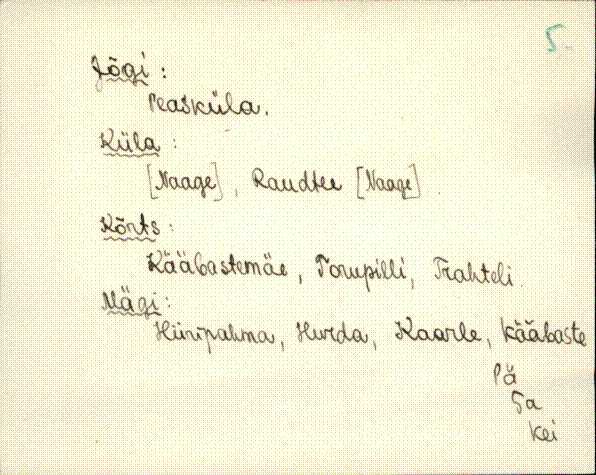 5.
Jõgi:
Peasküla.
Küla:
[Naage], Raudtee [Naage].
Kõrts:
Kääbastemäe, Torupilli, Trahteli.
Mägi:
Hiiripahma, Hurda, Kaarle, Kääbaste
Pä
Sa
Kei